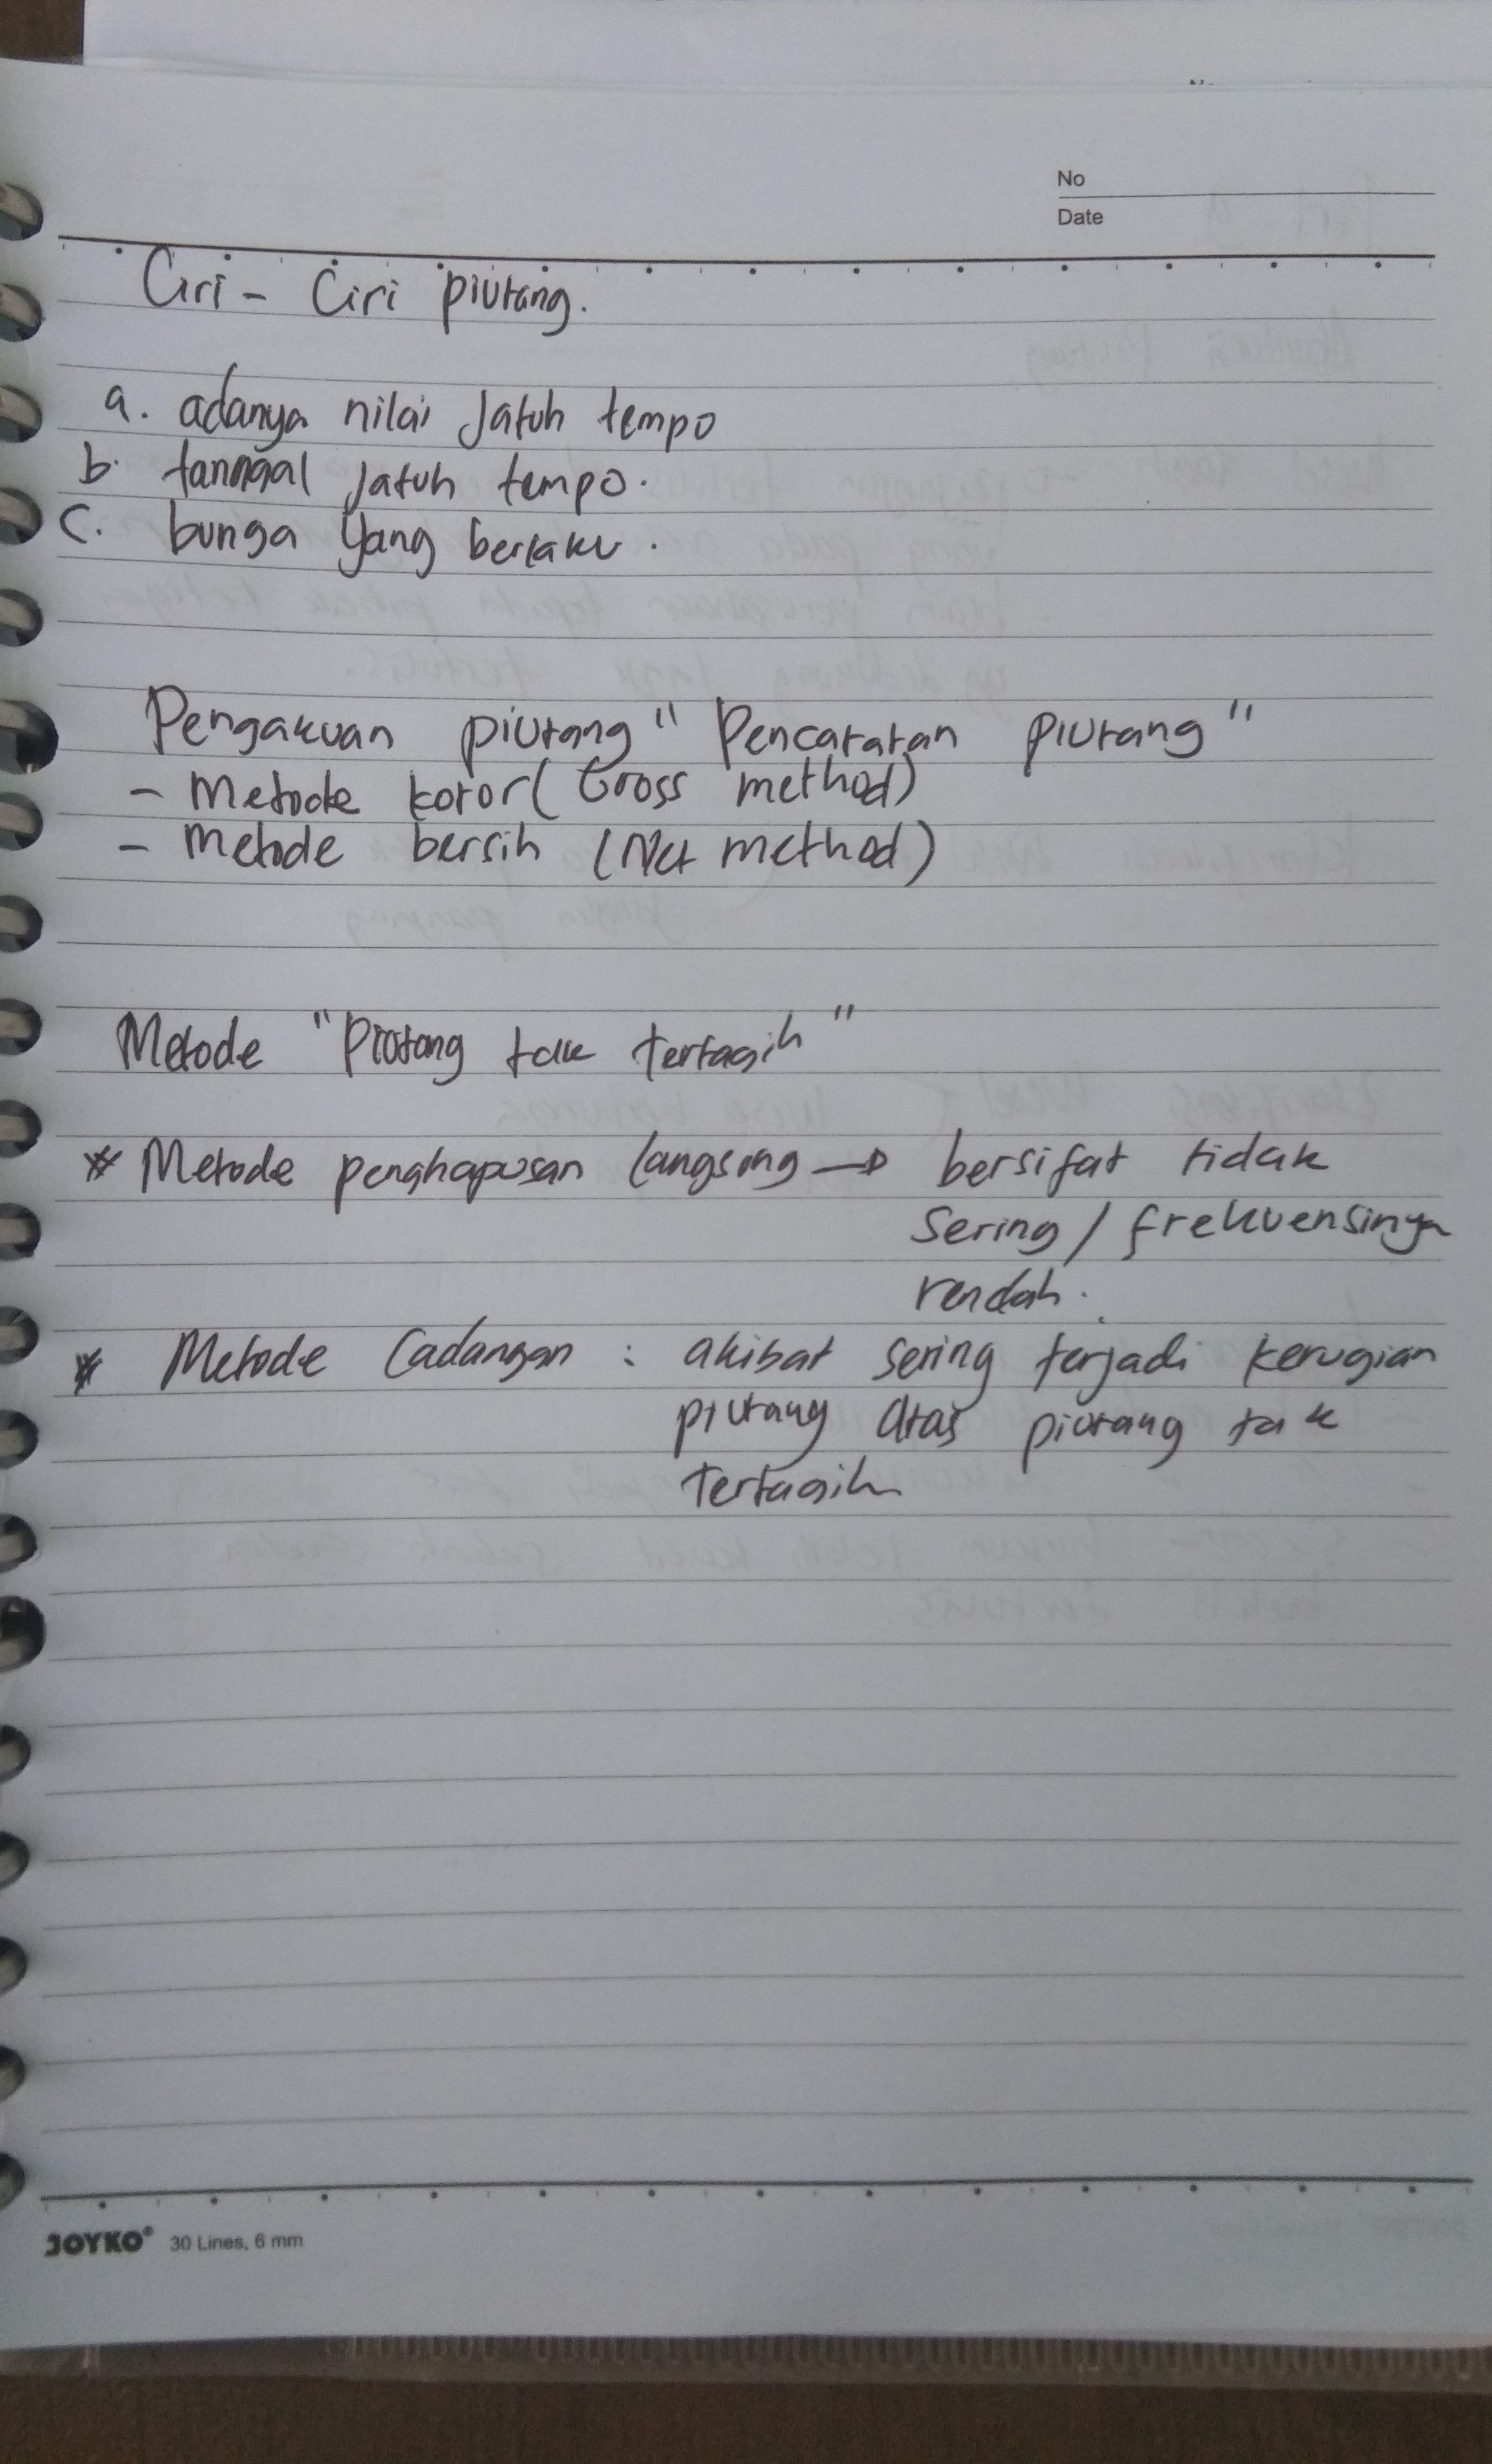 No
Date
Ciri - Ciri piutang.
a. adanya nilai Jatuh tempo
b. tanggal Jatuh tempo.
c. bunga yang berlaku.
Pengakuan piutang " Pencatatan Piutang "
- Metode kotor ( Gross method)
- Metode bersih (Net method)
Metode "Piutang tak tertagih"
* Metode penghapusan langsung → bersifat tidak
Sering / frekuensinya
rendah.
* Metode Cadangan : akibat sering terjadi kerugian
piutang atas piutang tak
Tertagih
JOYKO® 30 Lines, 6 mm